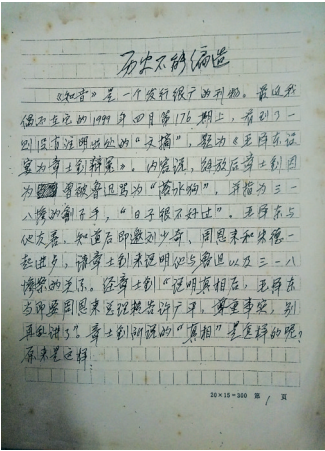 历史不能编造
《知音》是一个发行很广的刊物。最近我
偶尔在它的1999年四月第176期上,看到了一
则没有注明出处的“文摘”,题为《毛泽东设
宴为章士钊辩冤》。内容说,解放后章士钊因
为曾被鲁迅骂为“落水狗”,并指为三一
八惨案刽子手,“日子很不好过”。毛泽东与
他友善,知道后即邀刘少奇、周恩来和朱德一
起进点,请章士钊来说明他与鲁迅以及三一八
惨案的关系。经章士钊“说明真相后,毛泽东
当即要周恩来总理转告许广平,尊重事实,别
再乱讲了?章士钊所说的“真相”是怎样的呢?
原来是这样:
20×15=300 第 1 页